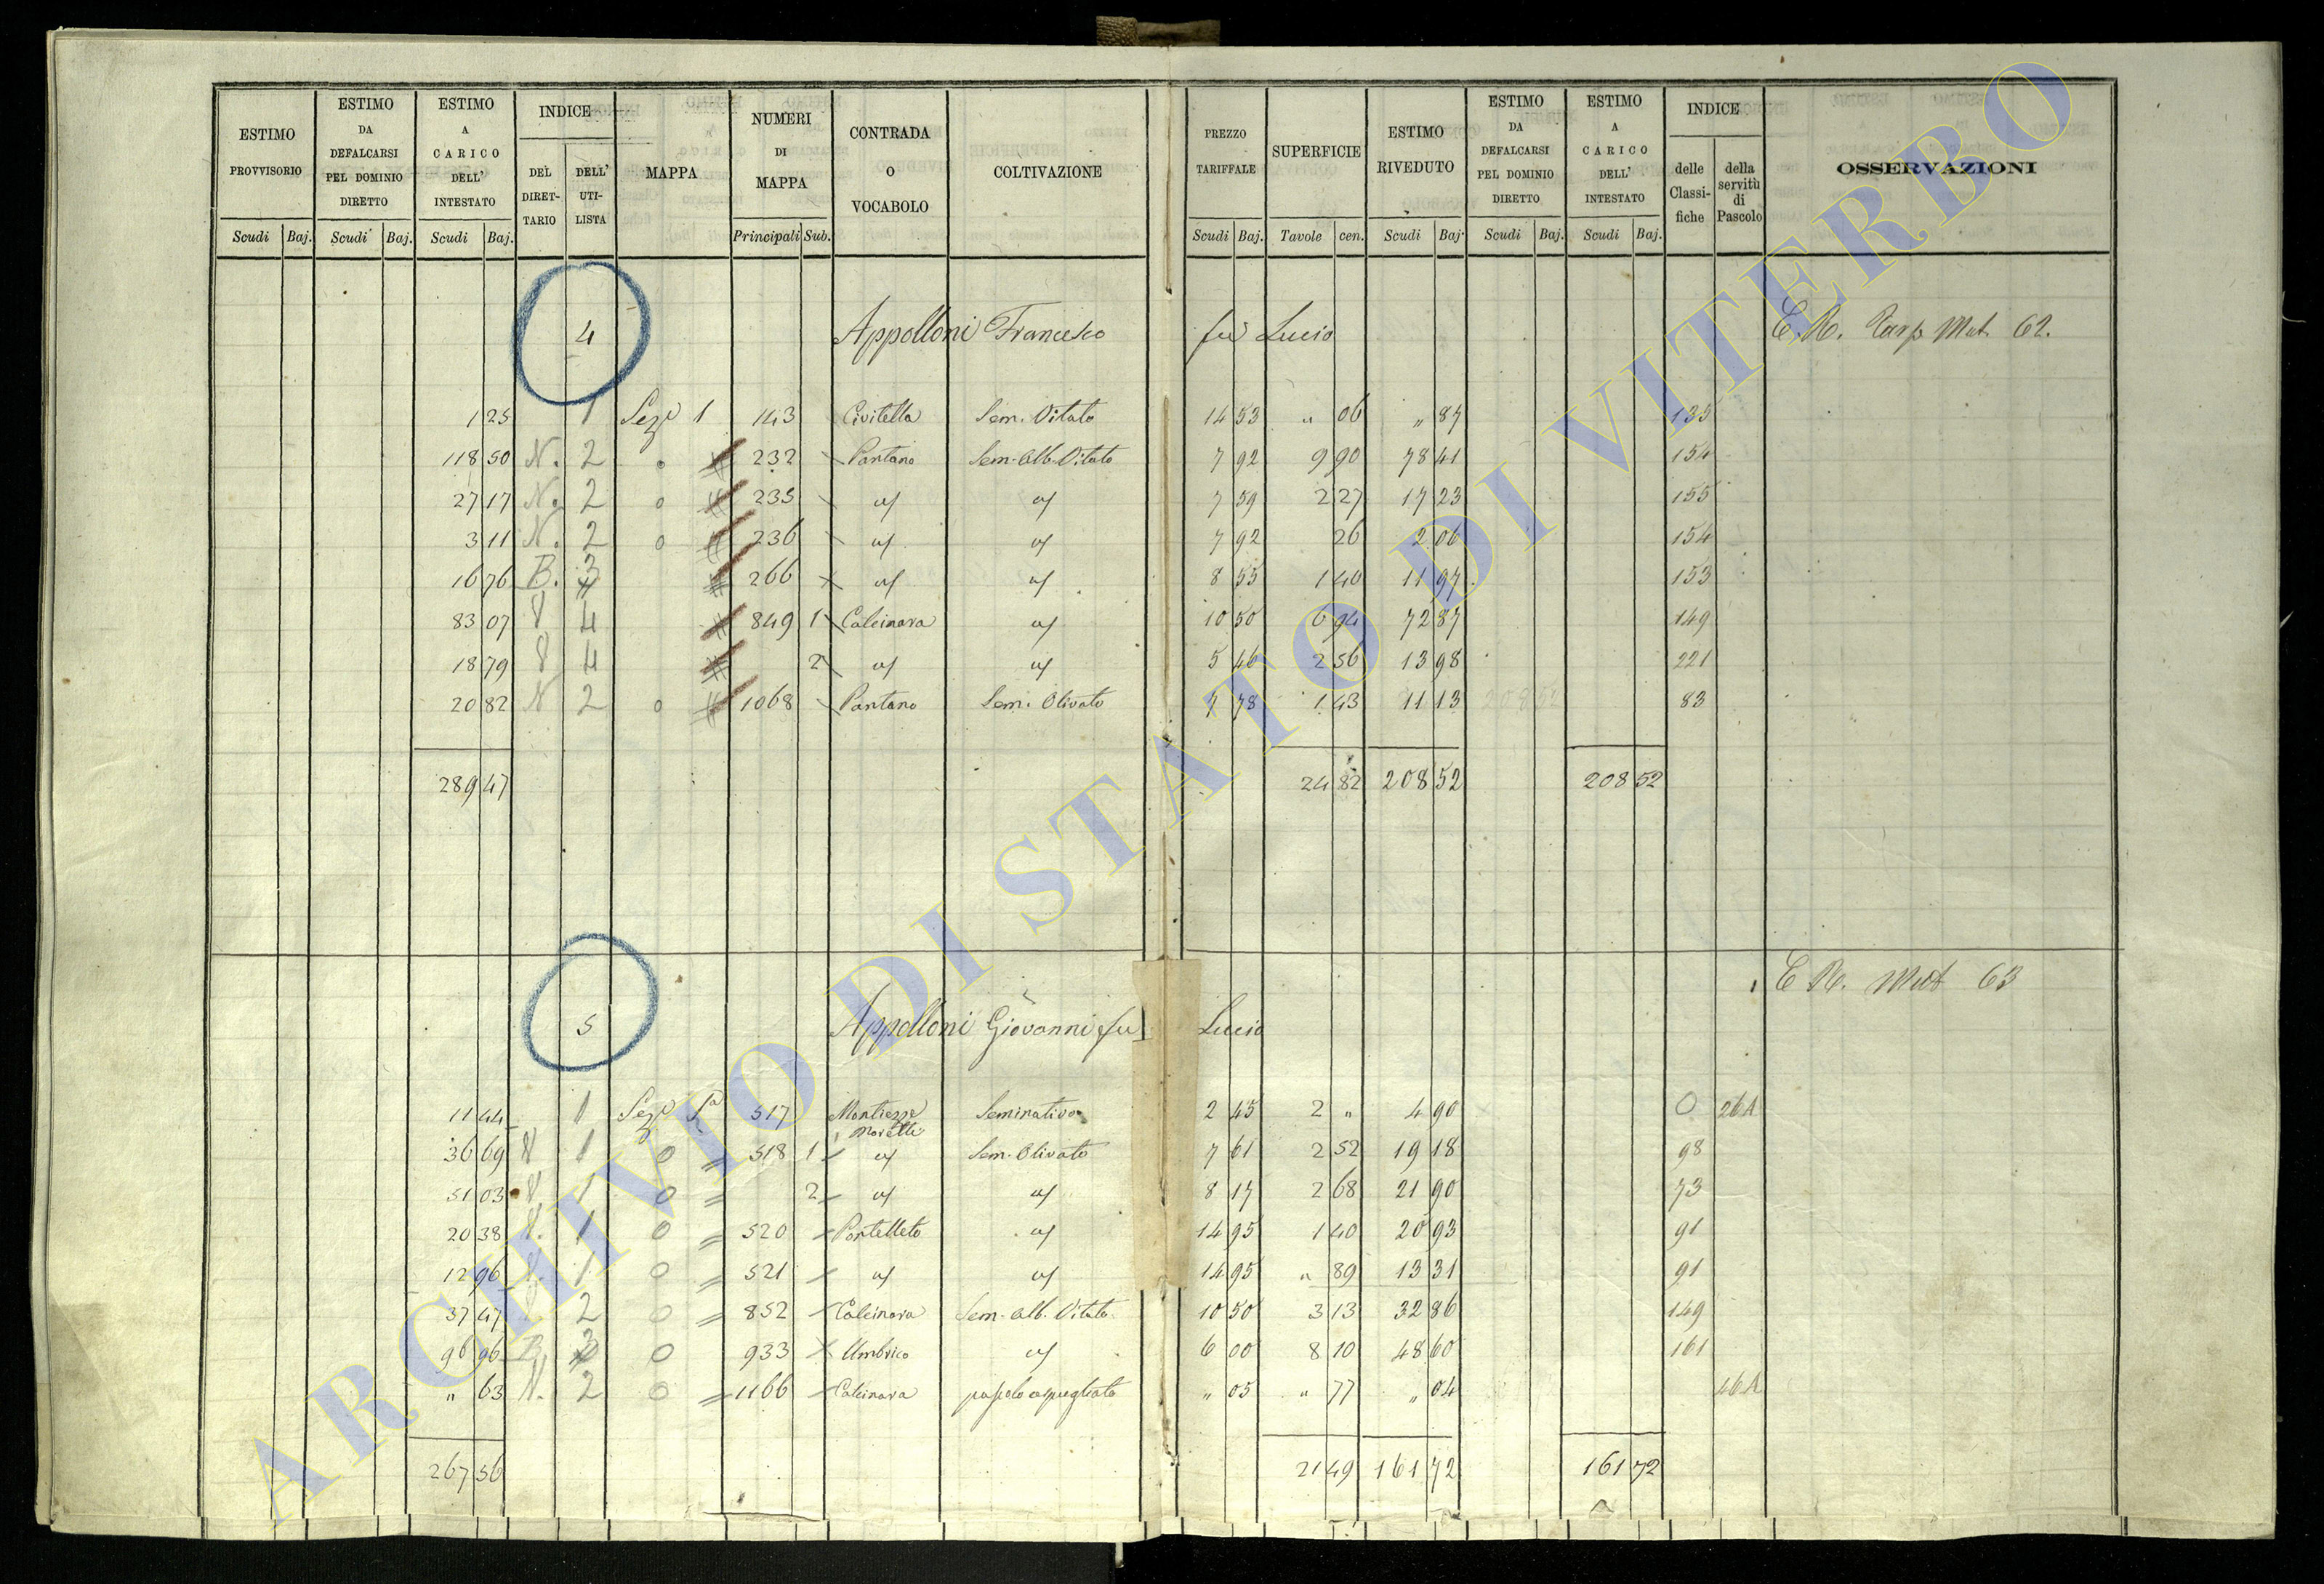 ESTIMO PROVVISORIO | ESTIMO DA DEFALCARSI PEL DOMINIO DIRETTO | ESTIMO A CARICO DELL' INTESTATO | INDICE DEL DIRET-TARIO | DELL' UTI-LISTA | MAPPA | NUMERI DI MAPPA | CONTRADA O VOCABOLO | COLTIVAZIONE | PREZZO TARIFFALE | SUPERFICIE | ESTIMO RIVEDUTO | ESTIMO DA DEFALCARSI PEL DOMINIO DIRETTO | ESTIMO A CARICO DELL' INTESTATO | INDICE delle Classi-fiche | della servitù di Pascolo | OSSERVAZIONI
Scudi Baj. | Scudi Baj. | Scudi Baj. | Principali Sub. | Scudi Baj. | Tavole cen. | Scudi Baj. | Scudi Baj. | Scudi Baj.
4 Appolloni Francesco fu Lucio C. R. Mut. 62.
1 25 1 Sez.e 1 143 Civitella Sem. Vitato 14 53 " 06 " 87 135
118 50 N. 2 o 232 Pantano Sem. Alb. Vitato 7 92 9 90 78 41 154
27 17 N. 2 o 235 " " 7 59 2 27 17 23 155
3 11 N. 2 o 236 " " 7 92 26 2 06 154
16 76 B. 3 266 " " 8 55 1 40 11 97 153
83 07 4 849 1 Calcinara " 10 50 6 94 72 87 149
18 79 4 2 " " 5 46 2 56 13 98 221
20 82 N 2 o 1068 Pantano Sem. Olivato 7 78 1 43 11 13 208 52 83
289 47 24 82 208 52 208 52
5 Appolloni Giovanni fu Lucio C R. Mut 63
11 44 1 Sez.e 1a 517 Moretti Seminativo 2 45 2 " 4 90 O 26A
36 69 1 O 518 1 " Sem. Olivato 7 61 2 52 19 18 98
51 03 1 O 2 " " 8 17 2 68 21 90 73
20 38 1 O 520 Portelleto " 14 95 1 40 20 93 91
12 96 1 O 521 " " 14 95 " 89 13 31 91
37 47 2 O 852 Calcinara Sem. Alb. Vitato 10 50 3 13 32 86 149
96 96 B O 933 Umbrico " 6 00 8 10 48 60 161
" 63 N. 2 O 1166 Calcinara pascolo cespugliato " 05 " 77 " 04 46A
267 56 21 49 161 72 161 72
ARCHIVIO DI STATO DI VITERBO